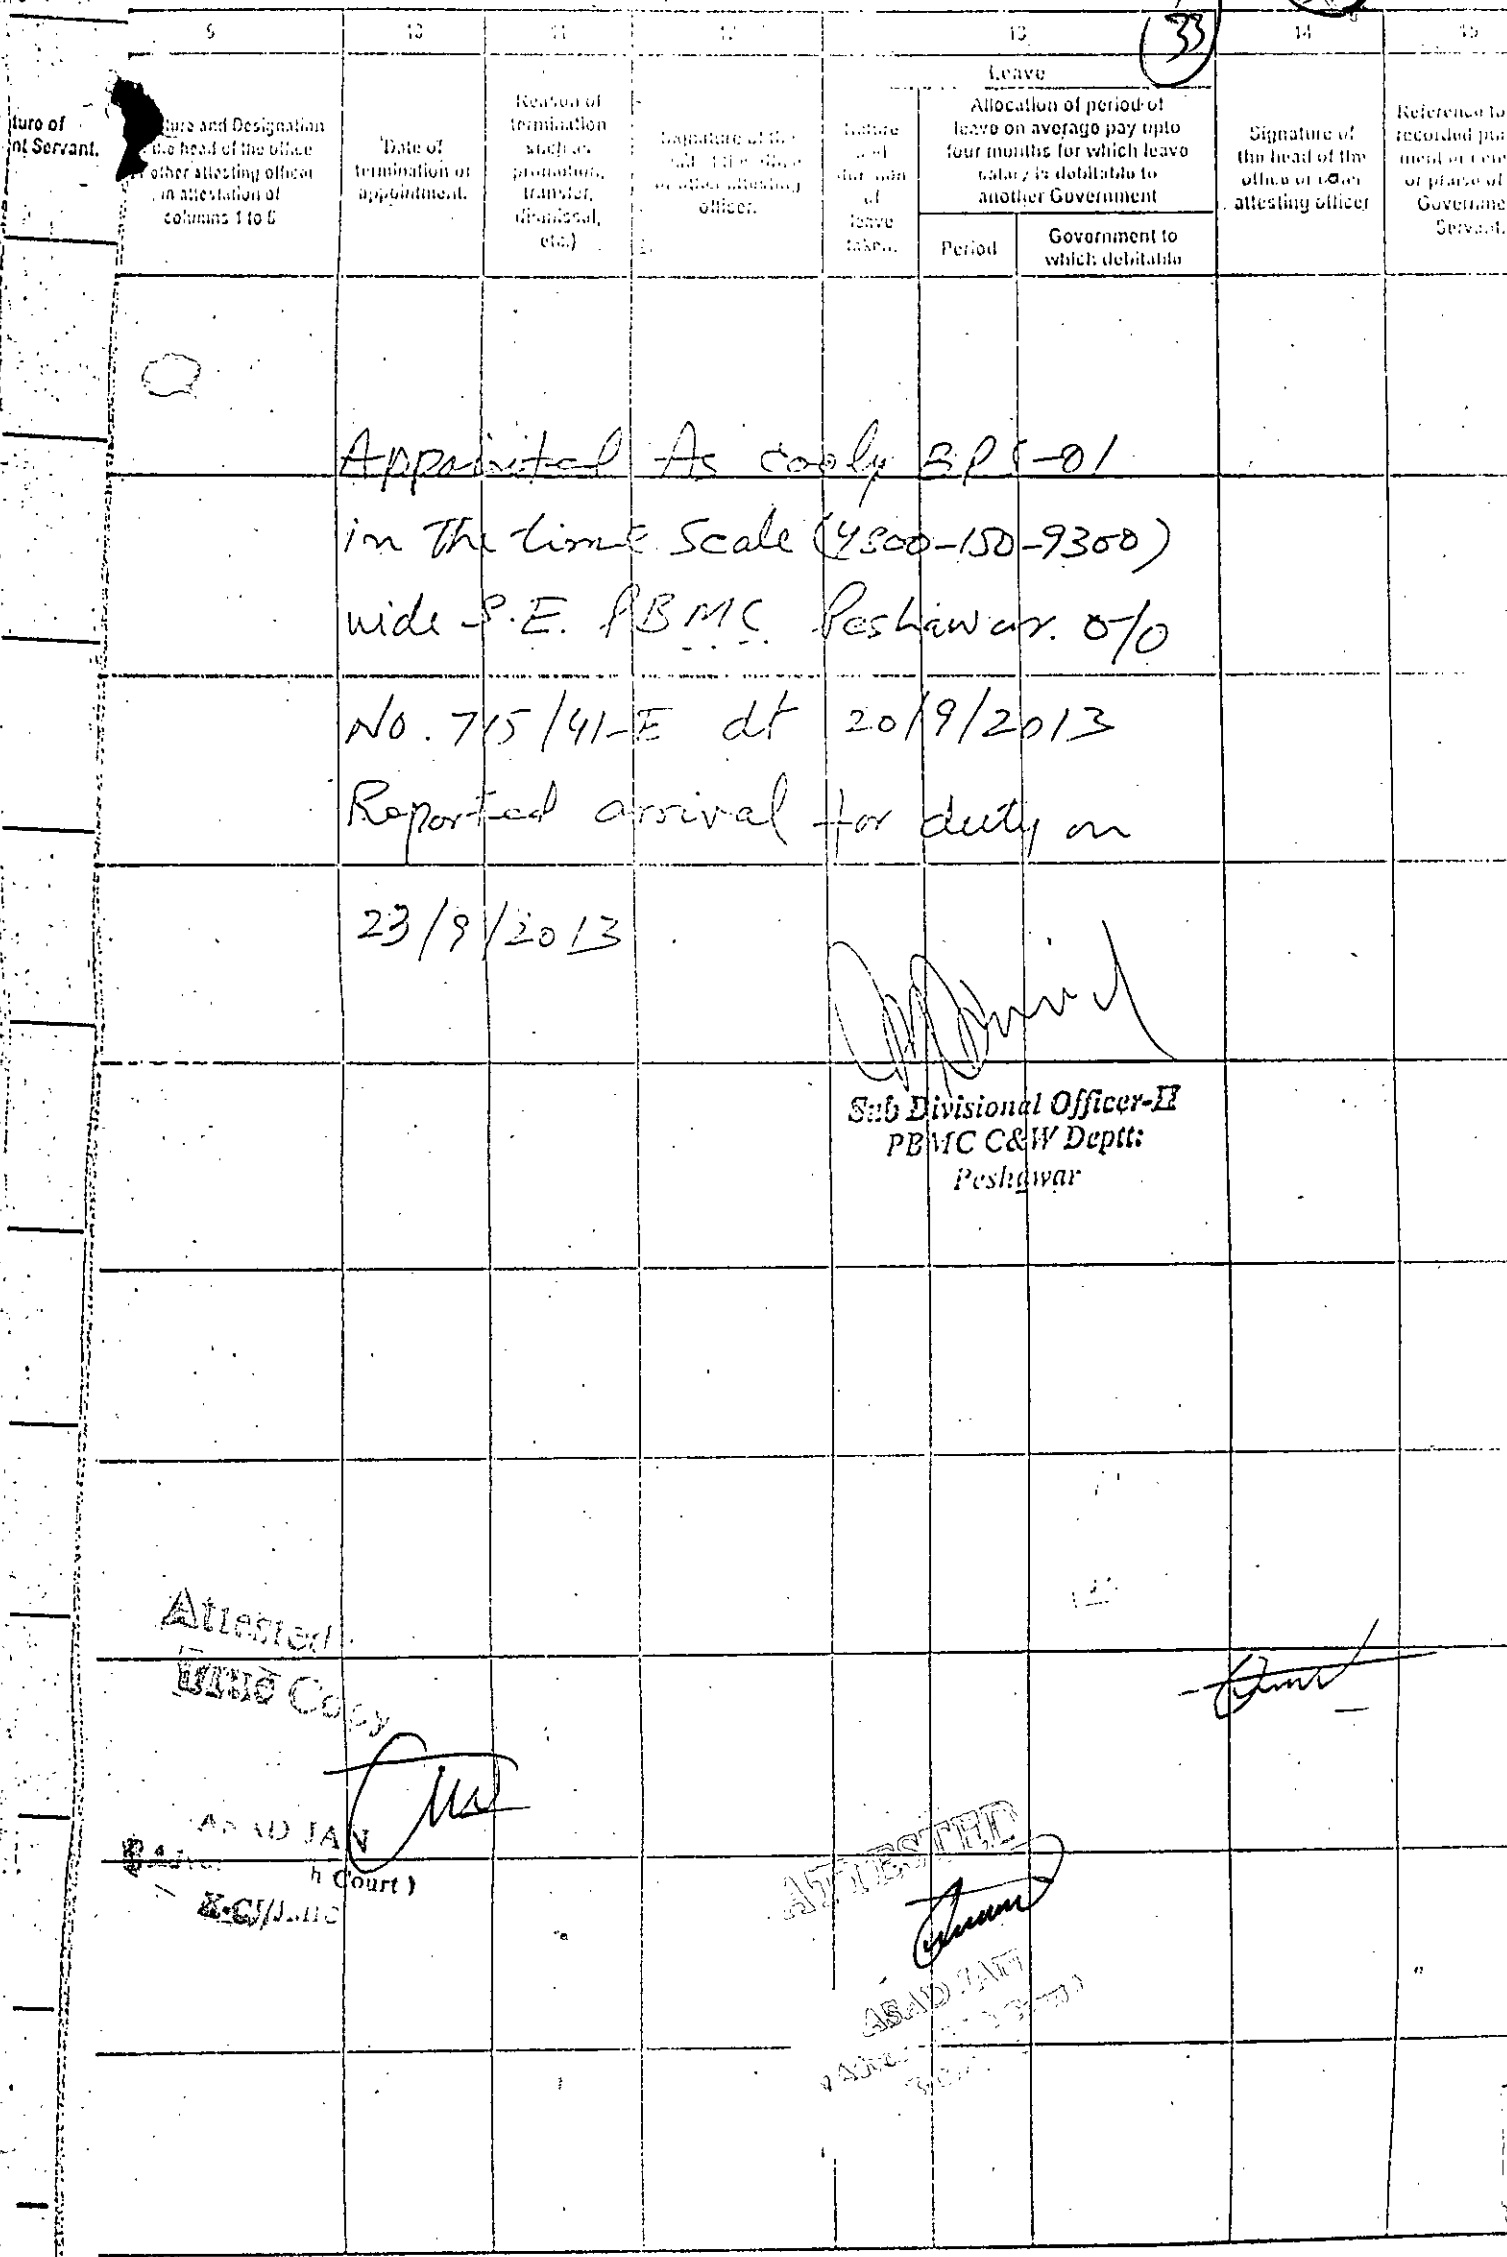 33
9 10 11 12 13 14 15
ture of
nt Servant.
ture and Designation
the head of the office
other attesting officer
in attestation of
columns 1 to 8
Date of
termination or
appointment.
Reason of
termination
such as
promotion,
transfer,
dismissal,
etc.)
Signature of the
or other attesting
officer.
Leave
Nature
and
duration
of
leave
taken.
Allocation of period of
leave on average pay upto
four months for which leave
salary is debitable to
another Government
Period
Government to
which debitable
Signature of
the head of the
office or other
attesting officer
Reference to
recorded
or praise of
Governme
Servant.
Appointed As cooly BPS-01
in The time Scale (4800-150-9300)
wide S.E. PBMC Peshawar. O/O
No. 715/41-E dt 20/9/2013
Reported arrival for duty on
23/9/2013
Sub Divisional Officer-II
PBMC C&W Deptt:
Peshawar
Attested
True Copy
ASAD JAN
h Court)
ATTESTED
ASAD JAN